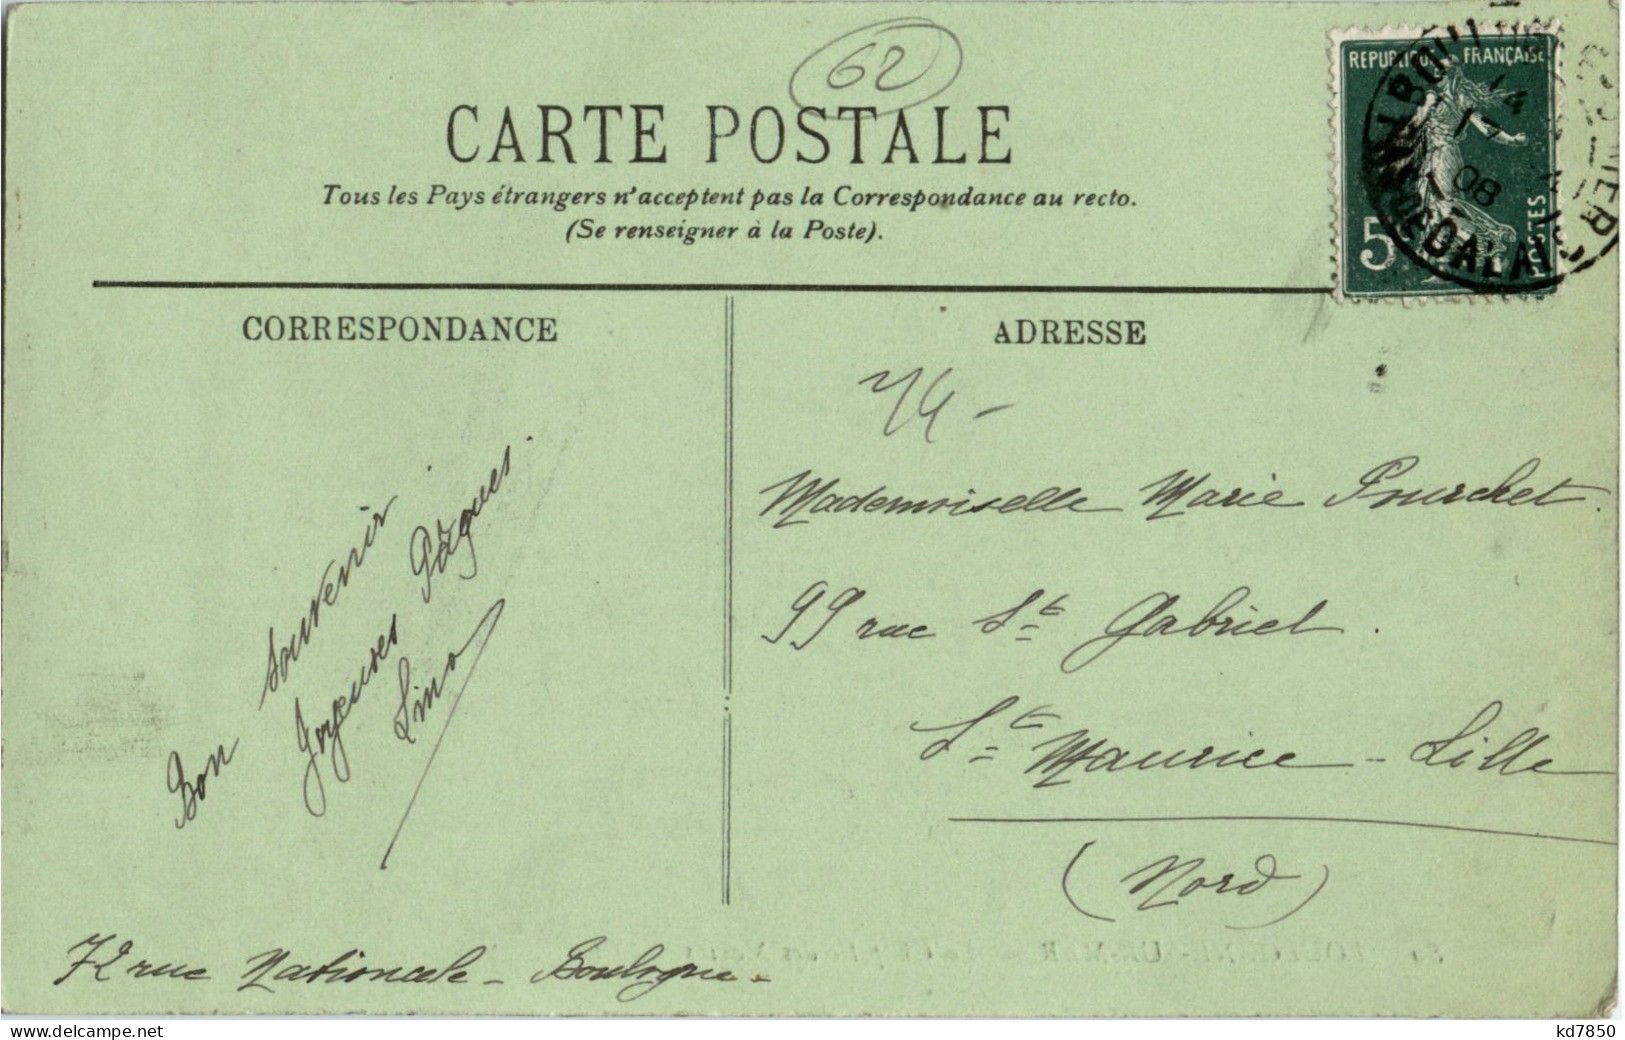 62
CARTE POSTALE
Tous les Pays étrangers n'acceptent pas la Correspondance au recto.
(Se renseigner à la Poste).
REPUBLIQUE FRANÇAISE
5
POSTES
08
CORRESPONDANCE
ADRESSE
Bon souvenir
Joyeuses Pâques.
Lina
72 rue Nationale - Boulogne -
Mademoiselle Marie Pourchet.
99 rue St Gabriel.
St Maurice - Lille
(Nord)
delcampe.net
kd7850